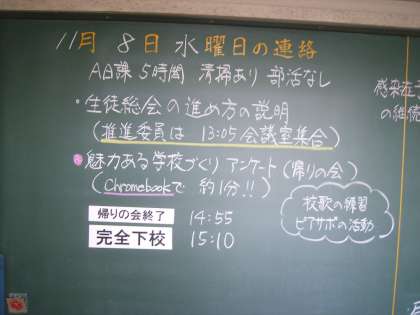 11月 8日 水曜日の連絡
A日課 5時間 清掃あり 部活なし
・生徒総会の進め方の説明
(推進委員は 13:05 会議室集合)
・魅力ある学校づくり アンケート (帰りの会)
(Chromebookで 約1分!!)
帰りの会終了 14:55
完全下校 15:10
校歌の練習
ピアサポの活動
感染症
の継続